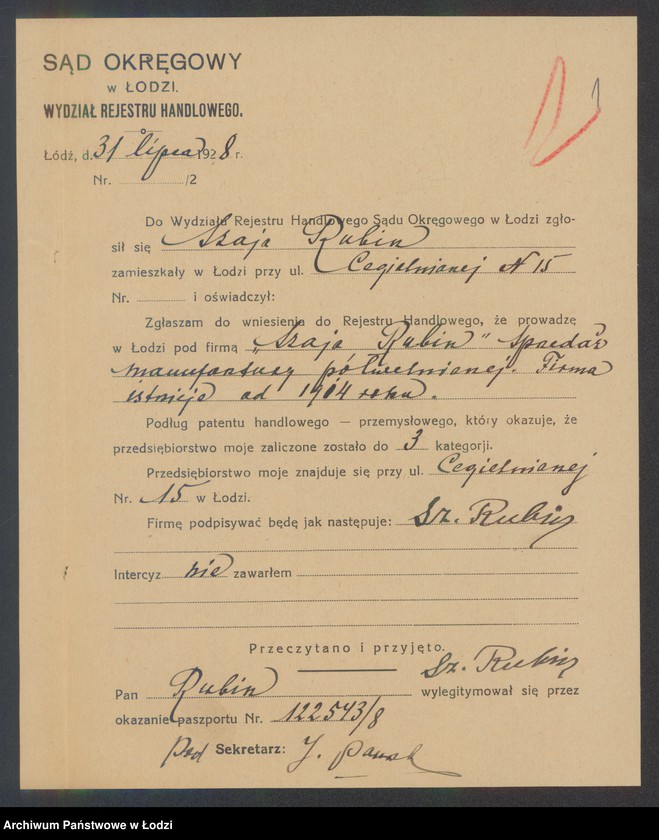 SĄD OKRĘGOWY
w ŁODZI.
WYDZIAŁ REJESTRU HANDLOWEGO.
1
Łódź, d. 31 lipca 1928 r.
Nr. /2
Do Wydziału Rejestru Handlowego Sądu Okręgowego w Łodzi zgło-
sił się Szaja Rubin
zamieszkały w Łodzi przy ul. Cegielnianej N 15
Nr. i oświadczył:
Zgłaszam do wniesienia do Rejestru Handlowego, że prowadzę
w Łodzi pod firmą „Szaja Rubin" Sprzedaż
manufaktury półwełnianej. Firma
istnieje od 1914 roku.
Podług patentu handlowego — przemysłowego, który okazuje, że
przedsiębiorstwo moje zaliczone zostało do 3 kategorji.
Przedsiębiorstwo moje znajduje się przy ul. Cegielnianej
Nr. 15 w Łodzi.
Firmę podpisywać będę jak następuje: Sz. Rubin
Intercyz nie zawarłem
Przeczytano i przyjęto.
Sz. Rubin
Pan Rubin wylegitymował się przez
okazanie paszportu Nr. 122543/8
Pod Sekretarz: J.
Archiwum Państwowe w Łodzi